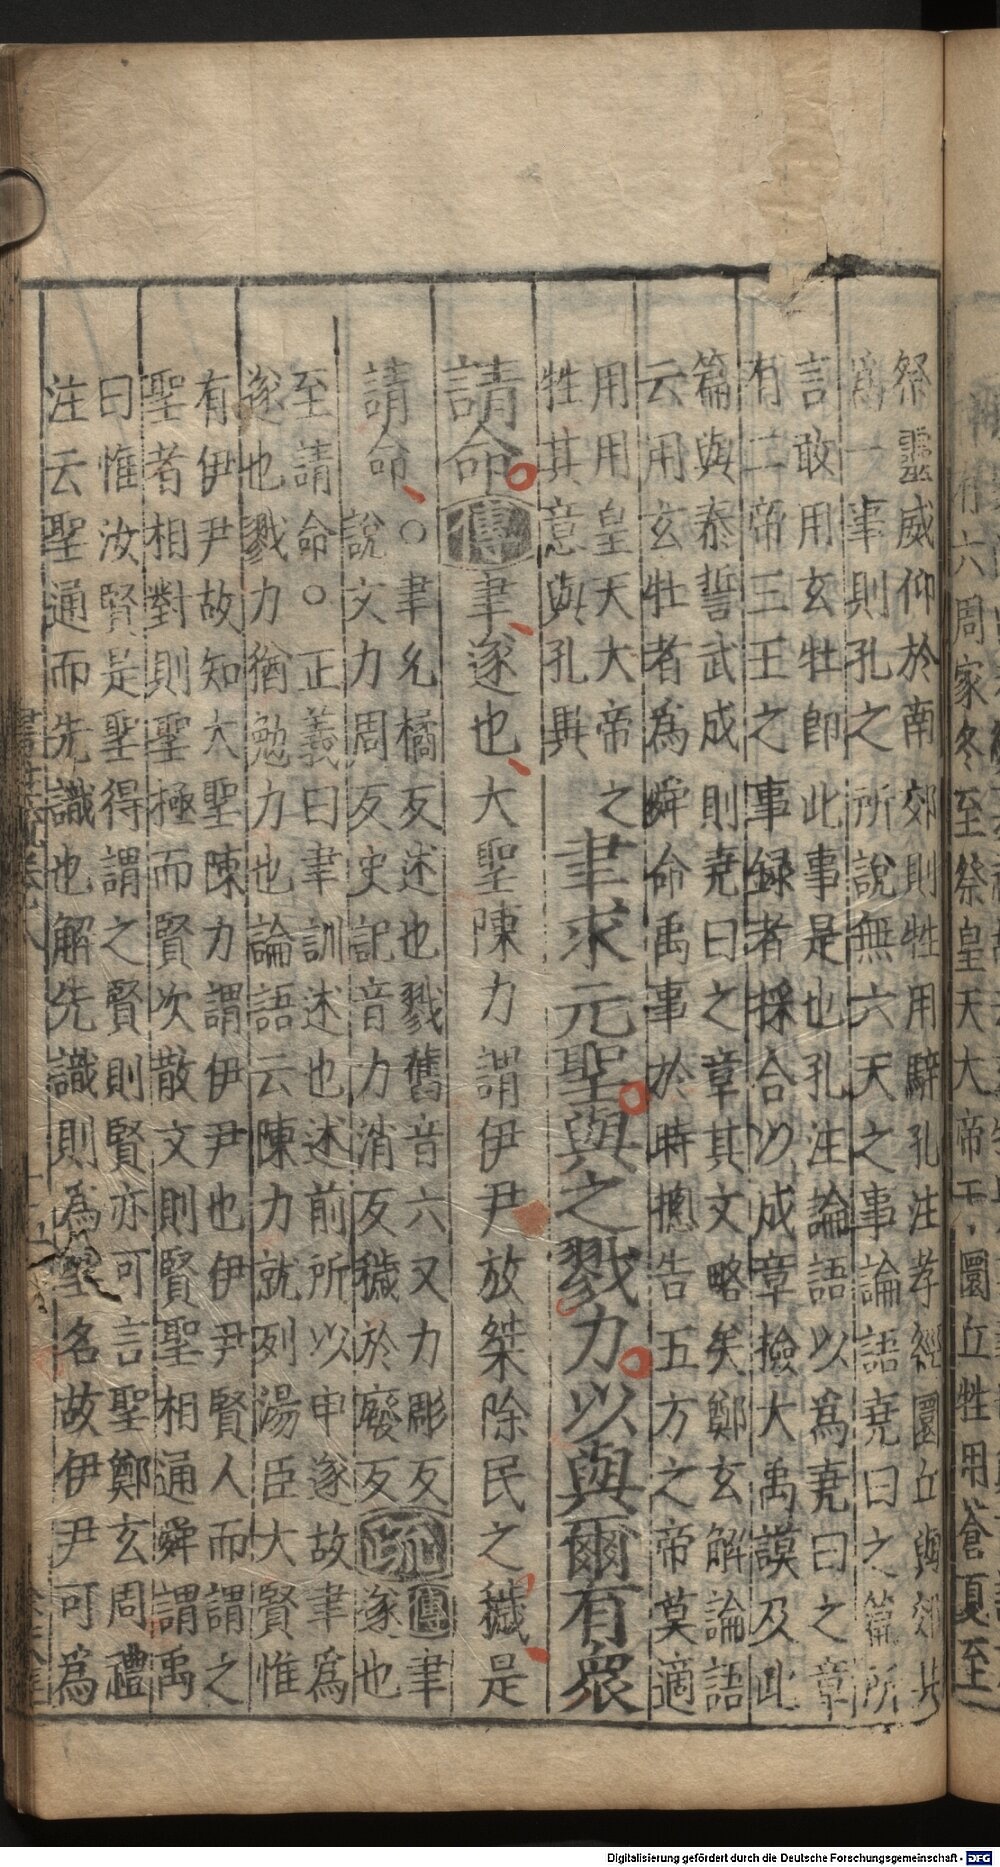 六周家冬至祭皇天大帝于圜丘牲用蒼夏至
祭靈威仰於南郊則牲用騂孔注孝經圜丘與郊共
爲一事則孔之所說無六天之事論語堯曰之篇所
言敢用玄牡即此事是也孔注論語以爲堯曰之章
有二帝三王之事録者採合以成章撿大禹謨及此
篇與泰誓武成則堯曰之章其文略矣鄭玄解論語
云用玄牡者為舜命禹事於時揔告五方之帝莫適
用用皇天大帝之
牲其意與孔異
聿求元聖與之戮力以與爾有衆
請命傳聿遂也大聖陳力謂伊尹放桀除民之穢是
請命
○聿允橘反述也戮舊音六又力彫反
說文力周反史記音力消反穢於廢反
疏
傳聿
遂也
至請命○正義曰聿訓述也述前所以申遂故聿爲
遂也戮力猶勉力也論語云陳力就列湯臣大賢惟
有伊尹故知大聖陳力謂伊尹也伊尹賢人而謂之
聖者相對則聖極而賢次散文則賢聖相通舜謂禹
曰惟汝賢是聖得謂之賢則賢亦可言聖鄭玄周禮
注云聖通而先識也解先識則為聖名故伊尹可為
Digitalisierung gefördert durch die Deutsche Forschungsgemeinschaft - DFG